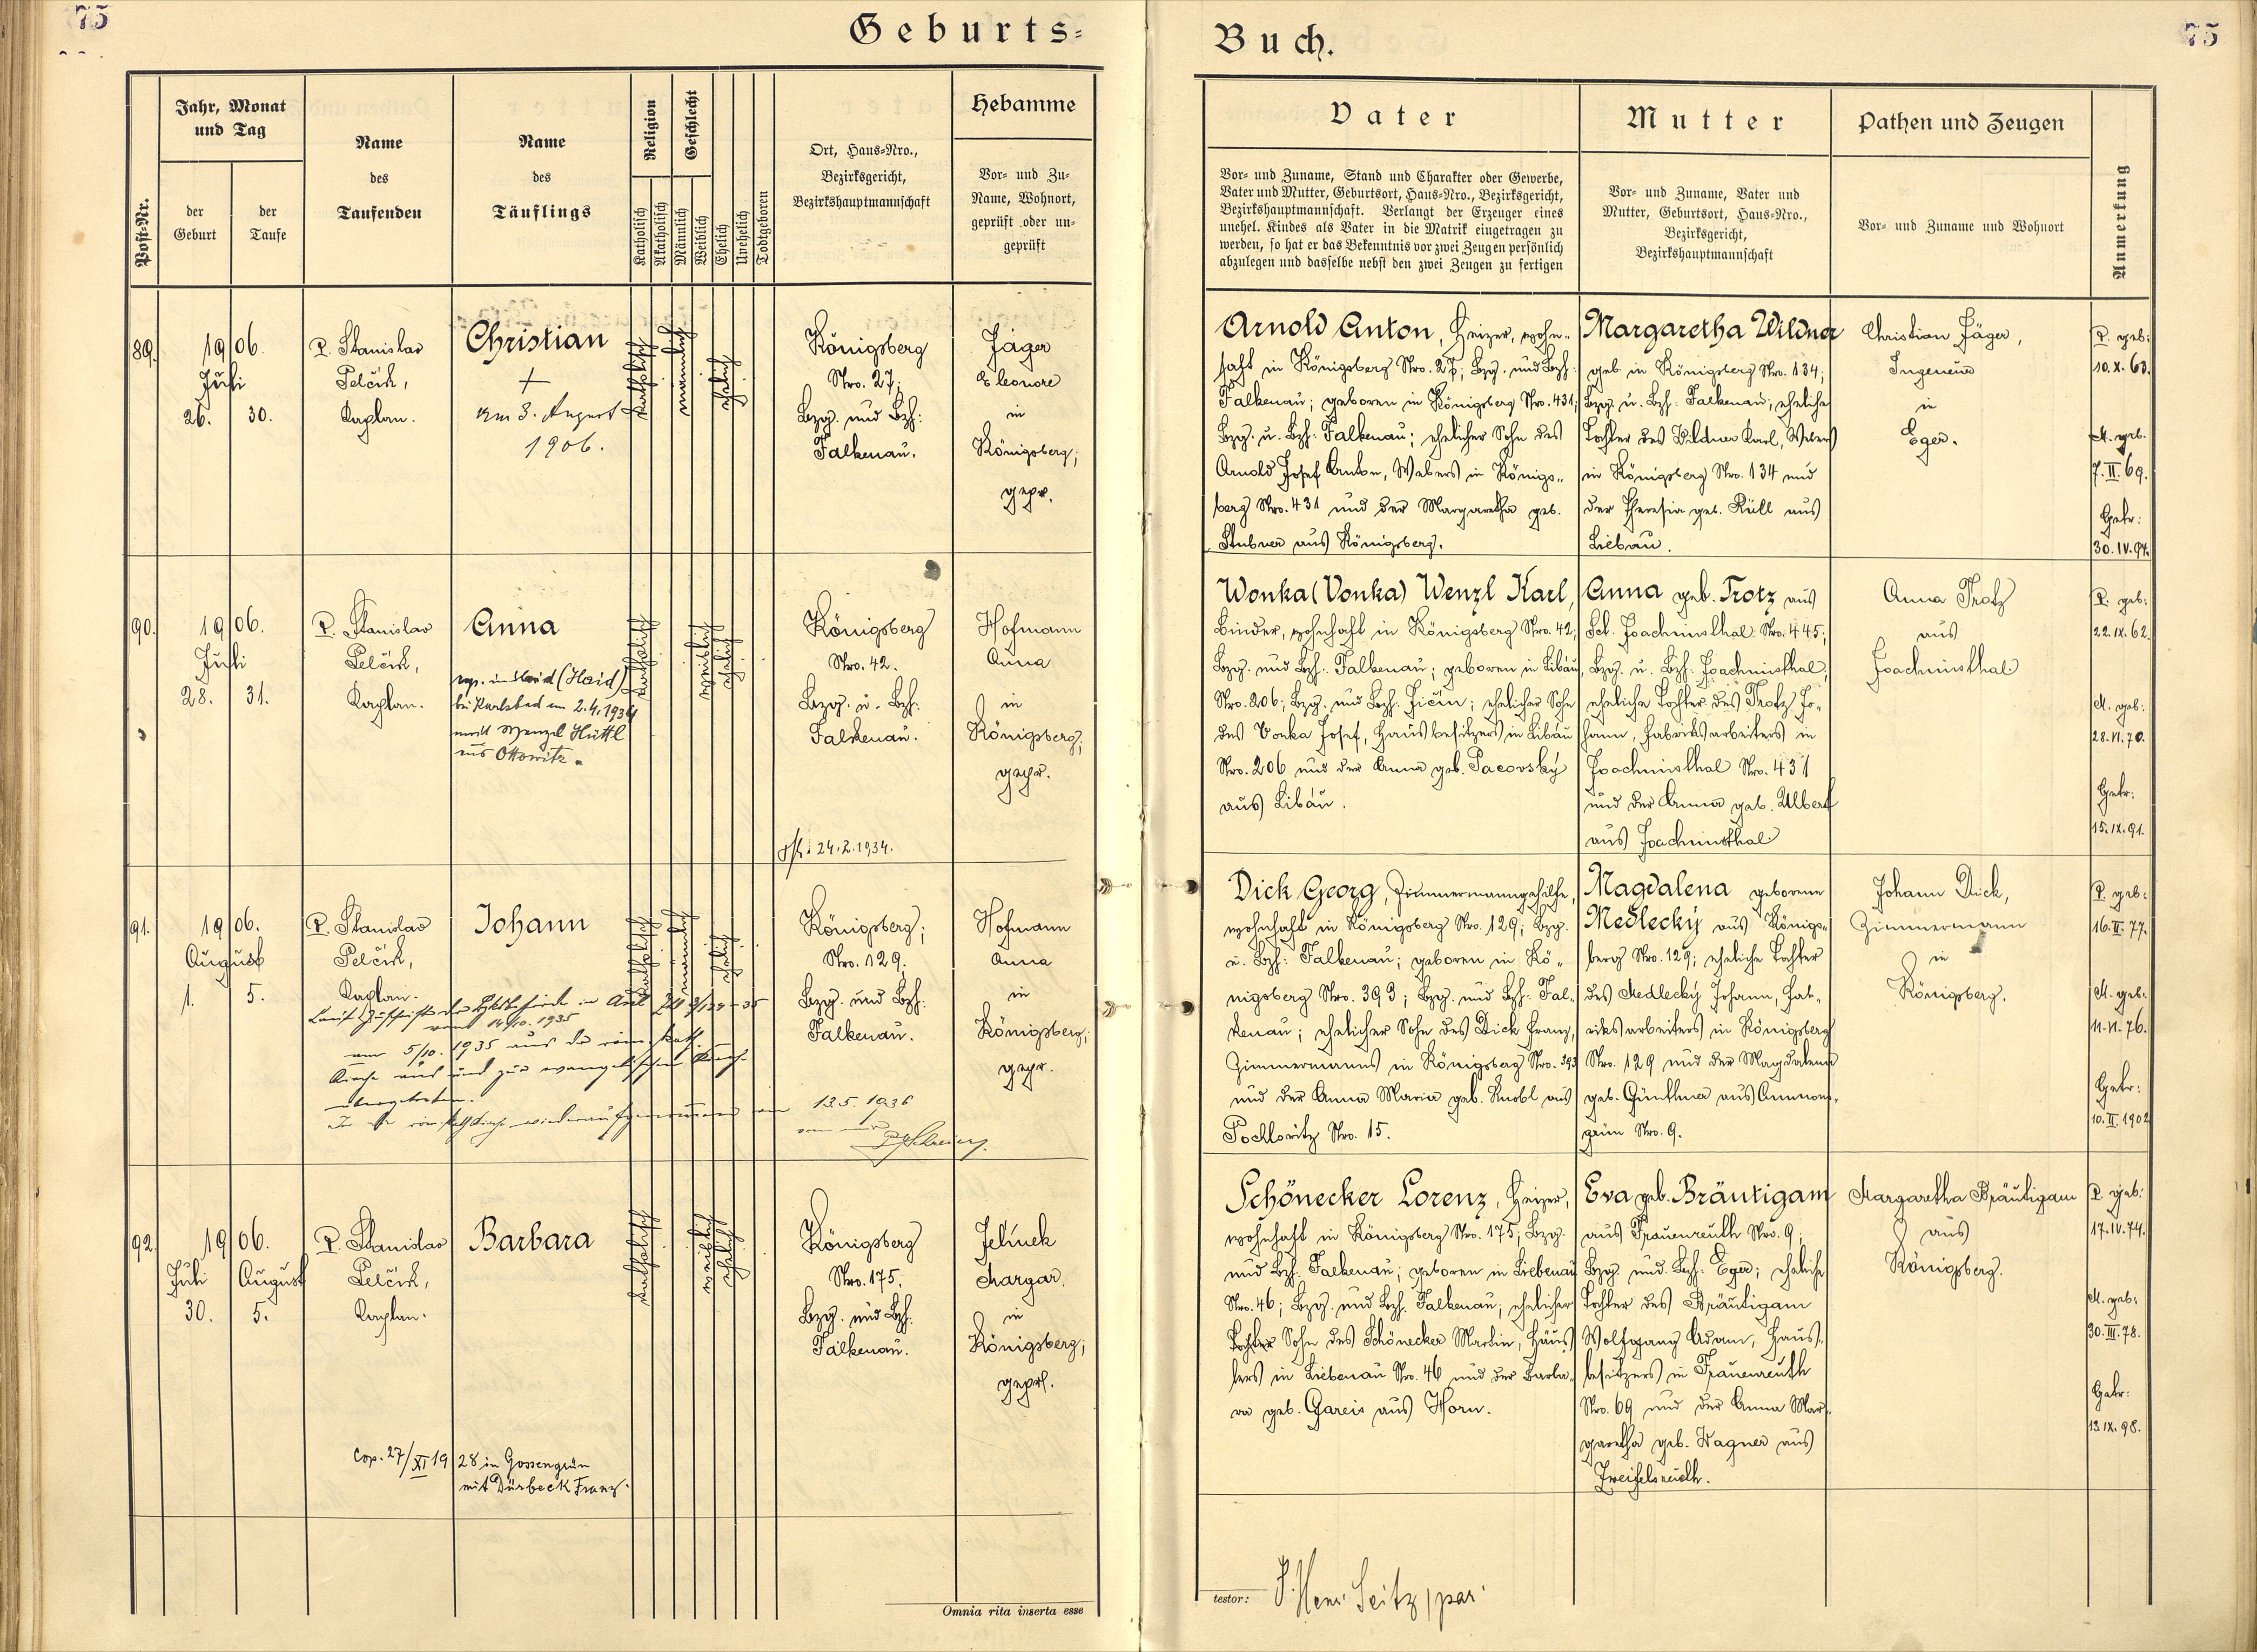 75
Geburts=
Post-Nr.
Jahr, Monat
und Tag
der
Geburt
der
Taufe
Name
des
Taufenden
Name
des
Täuflings
Religion
Katholisch
Akatholisch
Geschlecht
Männlich
Weiblich
Ehelich
Unehelich
Todtgeboren
Ort, Haus=Nro.,
Bezirksgericht,
Bezirkshauptmannschaft
Hebamme
Vor= und Zu=
Name, Wohnort,
geprüft oder un=
geprüft
89.
1906.
Juli
26.
30.
P. Stanislav
Pelčik,
Kaplan.
Christian
+
am 3. August
1906.
katholisch
männlich
ehelich
Königsberg
Nro. 27;
Bzg. und Bzh:
Falkenau.
Jäger
Eleonore
in
Königsberg;
gepr.
90.
1906.
Juli
28.
31.
P. Stanislav
Pelčik,
Kaplan.
Anna
(Haid)
bei Karlsbad am 2.4.1934
mit Wenzel Hüttl
aus Ottowitz.
katholisch
weiblich
ehelich
Königsberg
Nro. 42.
Bzg. u. Bzh:
Falkenau.
24.2.1934.
Hofmann
Anna
in
Königsberg;
gepr.
91.
1906.
August
1.
5.
P. Stanislav
Pelčik,
Kaplan.
Johann
katholisch
männlich
ehelich
Laut Zuschrift der in Asch
vom 14/10. 1935
am 5/10. 1935 aus der röm. kath.
Kirche aus und zur evangelischen Kirche
übergetreten.
In die röm. kath. Kirche wiederaufgenommen am 13.5.1936
Königsberg;
Nro. 129;
Bzg. und Bzh:
Falkenau.
Hofmann
Anna
in
Königsberg;
gepr.
92.
1906.
Juli
August
30.
5.
P. Stanislav
Pelčik,
Kaplan.
Barbara
katholisch
weiblich
ehelich
Königsberg
Nro. 175.
Bzg. und Bzh.
Falkenau.
Jelínek
Margar.
in
Königsberg;
gepr.
Cop. 27/XI 1928 in Gossengrün
mit Dürbeck Franz.
Omnia rita inserta esse
Buch.
75
Vater
Vor= und Zuname, Stand und Charakter oder Gewerbe,
Vater und Mutter, Geburtsort, Haus=Nro., Bezirksgericht,
Bezirkshauptmannschaft. Verlangt der Erzeuger eines
unehel. Kindes als Vater in die Matrik eingetragen zu
werden, so hat er das Bekenntnis vor zwei Zeugen persönlich
abzulegen und dasselbe nebst den zwei Zeugen zu fertigen
Mutter
Vor= und Zuname, Vater und
Mutter, Geburtsort, Haus=Nro.,
Bezirksgericht,
Bezirkshauptmannschaft
Pathen und Zeugen
Vor= und Zuname und Wohnort
Anmerkung
Arnold Anton, Heizer, wohn=
haft in Königsberg Nro. 27; Bzg. und Bzh:
Falkenau; geboren in Königsberg Nro. 431;
Bzg. u. Bzh: Falkenau; ehelicher Sohn des
Arnold Josef Anton, Webers in Königs=
berg Nro. 431 und der Margaretha geb.
Stubner aus Königsberg.
Margaretha Wildner
geb. in Königsberg Nro. 134;
Bzg. u. Bzh: Falkenau; eheliche
Tochter des Wildner Karl, Webers
in Königsberg Nro. 134 und
der Theresia geb. Rüll aus
Liebau.
Christian Jäger,
Ingenieur
in
Eger.
P. geb:
10.X.63.
M. geb.
7.II.69.
Getr:
30.IV.94.
Wonka (Vonka) Wenzl Karl,
Binder, wohnhaft in Königsberg Nro. 42;
Bzg. und Bzh: Falkenau; geboren in Libáu
Nro. 206; Bzg. und Bzh: Jičin; ehelicher Sohn
des Vonka Josef, Hausbesitzers in Libáu
Nro. 206 und der Anna geb. Pacovský
aus Libáu.
Anna geb. Trotz aus
Sct. Joachimsthal Nro. 445;
Bzg. u. Bzh: Joachimsthal;
eheliche Tochter des Trotz Jo=
hann, Fabriksarbeiters in
Joachimsthal Nro. 431
und der Anna geb. Ulbert
aus Joachimsthal
Anna Trotz
aus
Joachimsthal
P. geb:
22.IX.62.
M. geb:
28.VI.70.
Getr:
15.IX.91.
Dick Georg, Zimmermanngehilfe,
wohnhaft in Königsberg Nro. 129; Bzg.
u. Bzh: Falkenau; geboren in Kö=
nigsberg Nro. 393; Bzg. und Bzh: Fal=
kenau; ehelicher Sohn des Dick Franz,
Zimmermanns in Königsberg Nro. 393
und der Anna Maria geb. Knobl aus
Pochlowitz Nro. 15.
Magdalena geborene
Medlecký aus Königs=
berg Nro. 129; eheliche Tochter
des Medlecký Johann, Fab=
riksarbeiters in Königsberg
Nro. 129 und der Magdalena
geb. Günthner aus Ammons=
grün Nro. 9.
Johann Dick,
Zimmermann
in
Königsberg.
P. geb:
16.II.77.
M. geb:
11.VI.76.
Getr:
10.II.1902
Schönecker Lorenz, Heizer,
wohnhaft in Königsberg Nro. 175; Bzg.
und Bzh: Falkenau; geboren in Liebenau
Nro. 46; Bzg. und Bzh. Falkenau; ehelicher
Tochter Sohn des Schönecker Martin, Häus=
lers in Liebenau Nro. 46 und der Barba=
ra geb. Gareis aus Horn.
Eva geb. Bräutigam
aus Frauenreuth Nro. 9;
Bzg. und Bzh. Eger; eheliche
Tochter des Bräutigam
Wolfgang Adam, Haus=
besitzers in Frauenreuth
Nro. 69 und der Anna Mar=
garetha geb. Wagner aus
Zweifelsreuth.
Margaretha Bräutigam
aus
Königsberg.
P. geb:
17.IV.74.
M. geb:
30.III.78.
Getr:
13.IX.98.
testor:
Seitz